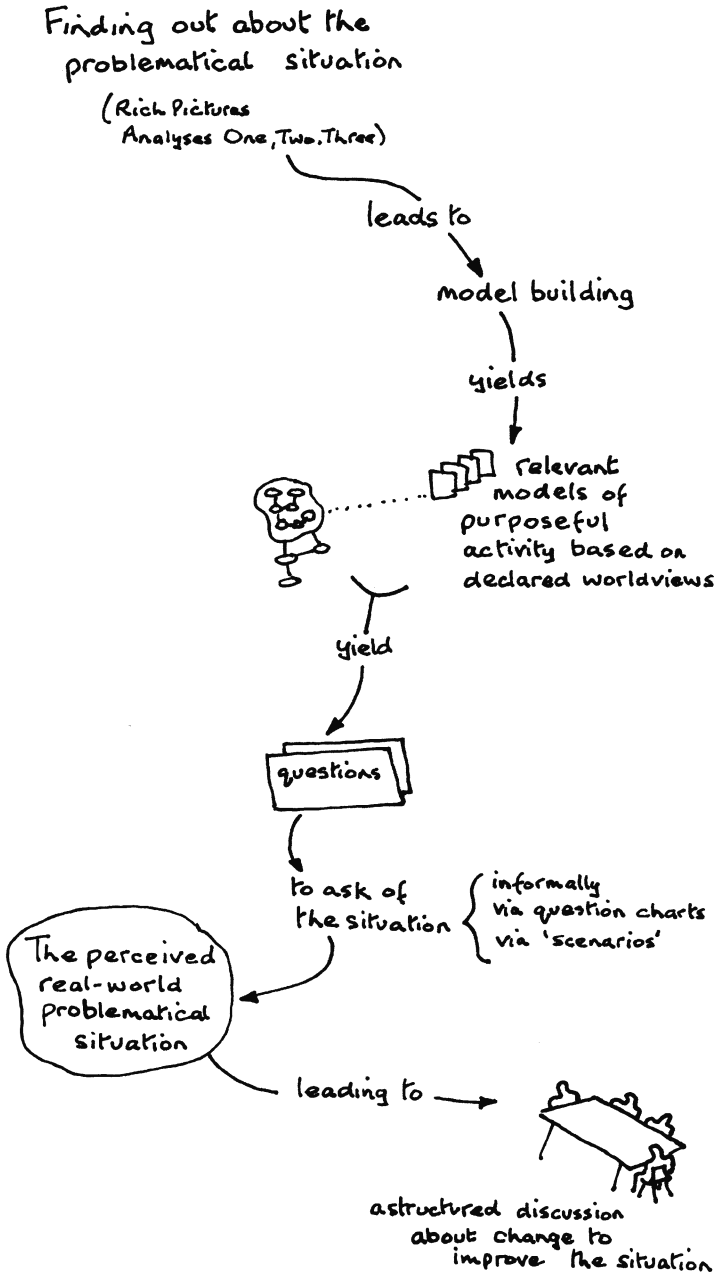 Finding out about the
problematical situation
(Rich Pictures
Analyses One, Two, Three)
leads to
model building
yields
relevant
models of
purposeful
activity based on
declared worldviews
yield
questions
to ask of
the situation
informally
via question charts
via 'scenarios'
The perceived
real-world
problematical
situation
leading to
a structured discussion
about change to
improve the situation